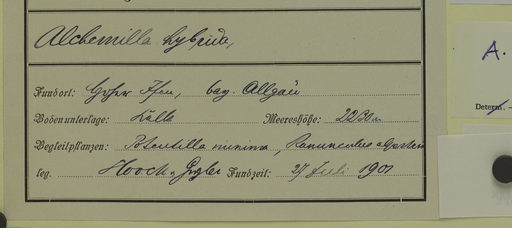 Alchemilla hybrida,
Fundort: Hoher Ifen, bay. Allgäu
Bodenunterlage: Kalk Meereshöhe: 2230m
Begleitpflanzen: Potentilla minima, Ranunculus alpestris
leg. Hoock Fundzeit: 27 Juli 1901
A.
Determ.